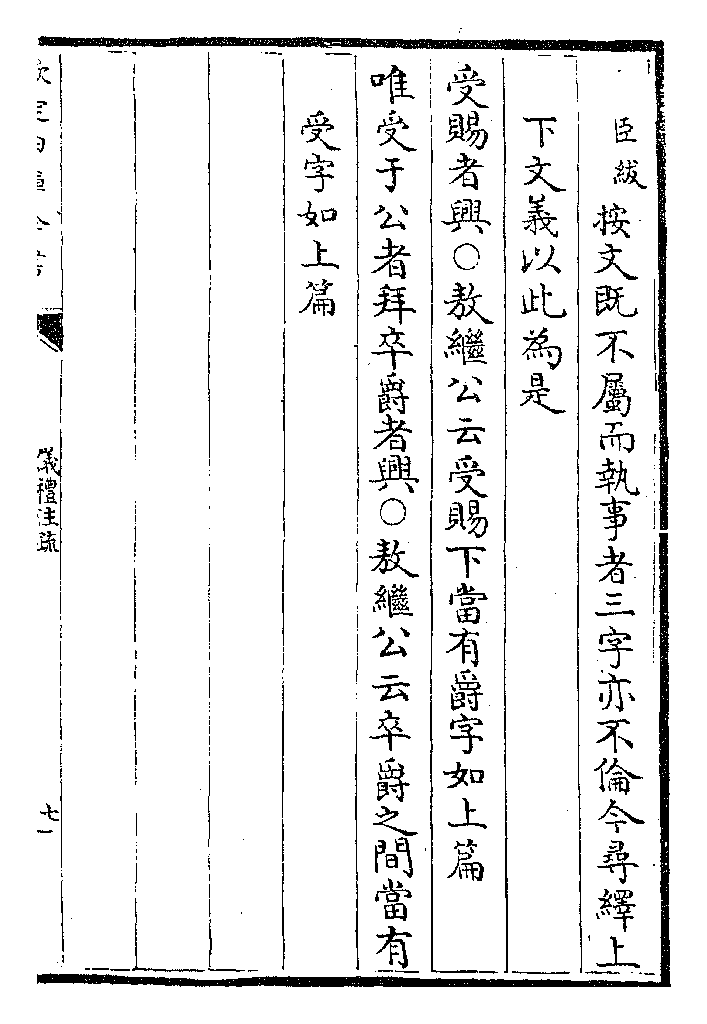 臣紱按文既不屬而執事者三字亦不倫今尋繹上
下文義以此為是
受賜者興○敖繼公云受賜下當有爵字如上篇
唯受于公者拜卒爵者興○敖繼公云卒爵之間當有
受字如上篇
儀禮注疏